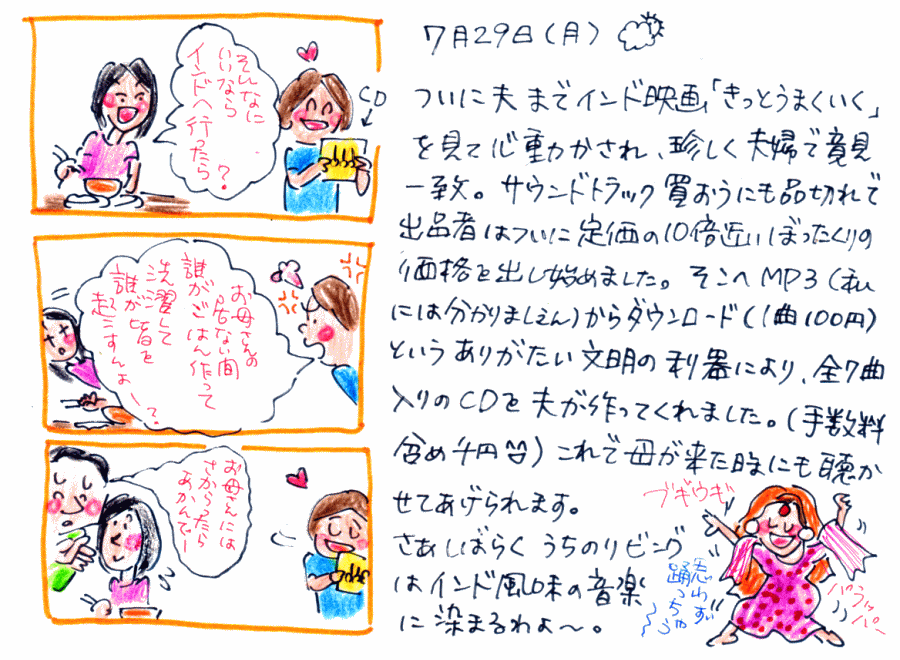 そんなに
いいなら
インドへ行ったら
?
CD
お母さんの
居ない間
誰がごはん作って
洗濯して
誰が皆を
起こすんよー?
お母さんには
さからったら
あかんでー
7月29日(月)
ついに夫までインド映画「きっとうまくいく」
を見て心動かされ、珍しく夫婦で意見
一致。サウンドトラック買おうにも品切れで
出品者はついに定価の10倍近いぼったくりの
価格を出し始めました。そこへMP3(私
には分かりましぇん)からダウンロード(1曲100円)
というありがたい文明の利器により、全7曲
入りのCDを夫が作ってくれました。(手数料
含め千円)これで母が来た時にも聴か
せてあげられます。
さあしばらくうちのリビング
はインド風味の音楽
に染まるわよ〜。
ブギウギ
思わず
踊っちゃう〜
パラッパー